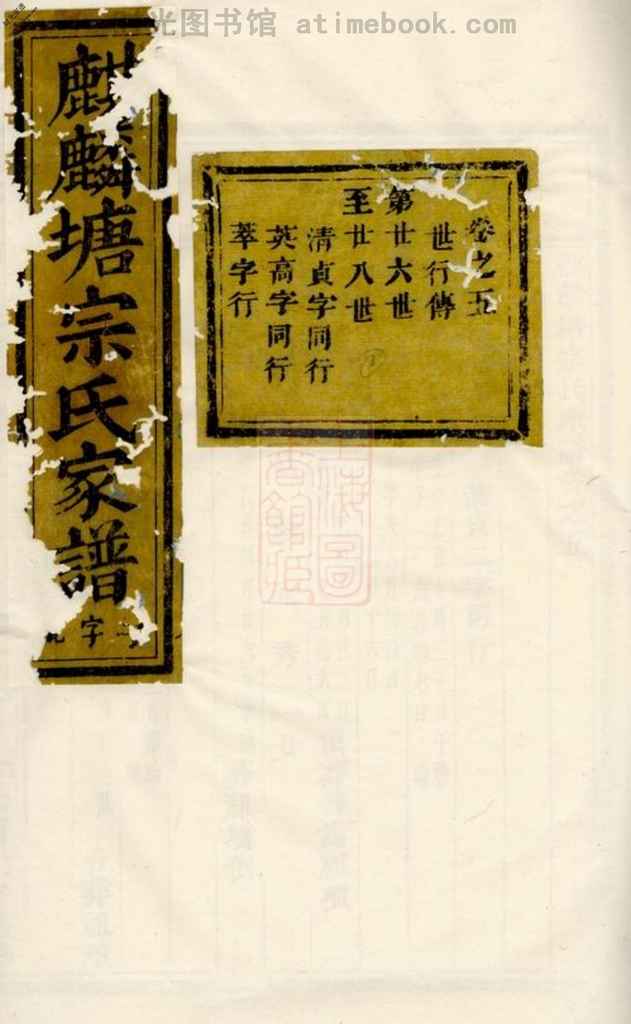 光图书馆 atimebook.com
卷之五
世行傳
第廿六世
至廿八世
清貞字同行
英高字同行
萃字行
麒麟塘宗氏家譜
字
上海图
书館藏